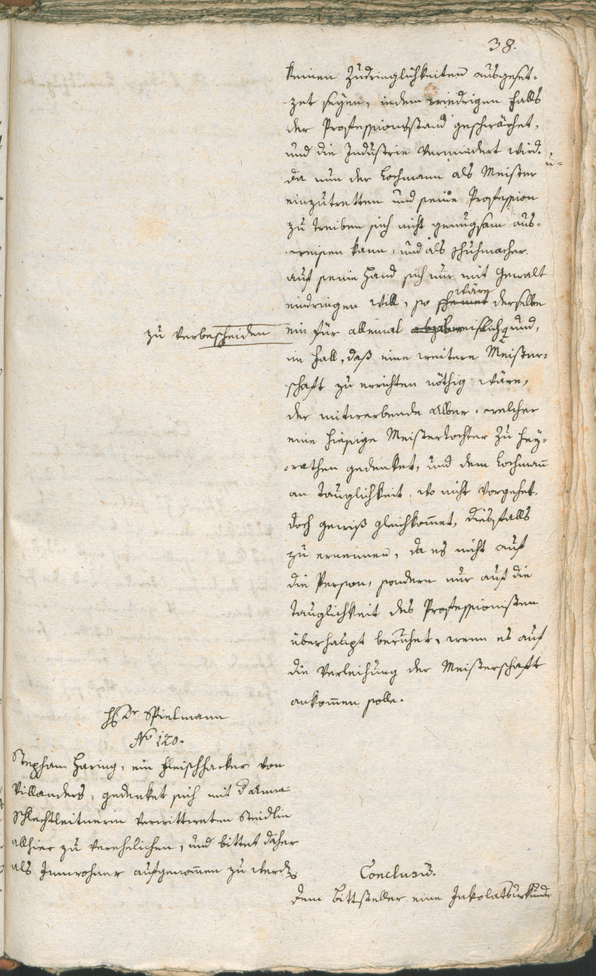 38.
keinen Zudringlichkeiten ausgeset-
zet seyen, indem wiedrigen Falls
der Professionsstand geschwächet,
und die Industrie vermindert wird.
Da nun der Lochmann als Meister
einzutretten und seine Profession
zu treiben sich nicht genugsam aus-
weisen kann, und als Schuhmacher
auf seine Hand sich nur mit Gewalt
eindringen will, so wäre derselbe
zu verbescheiden
ein für allemal und,
im Fall, daß eine weitere Meister-
schaft zu errichten nöthig wäre,
der mitwerbende Alber, welcher
eine hiesige Meisterstochter zu hey-
rathen gedenket, und dem Lochmann
an Tauglichkeit, wo nicht vorgehet,
doch gewiß gleichkommet, diesfalls
zu ernennen, da es nicht auf
die Person, sondern nur auf die
Tauglichkeit des Professionisten
überhaupt beruhet, wenn es auf
die Verleihung der Meisterschaft
ankommen solle.
H Dr Spielmann
No 120.
Stephan Haring, ein Fleischhacker von
Villanders, gedenket sich mit der Anna
Schlechtleitnerin verwittweten Steidlin
allhier zu verehelichen, und bittet daher
als Innwohner aufgenommen zu werden
Conclusum.
Dem Bittsteller eine Inkolatsurkunde